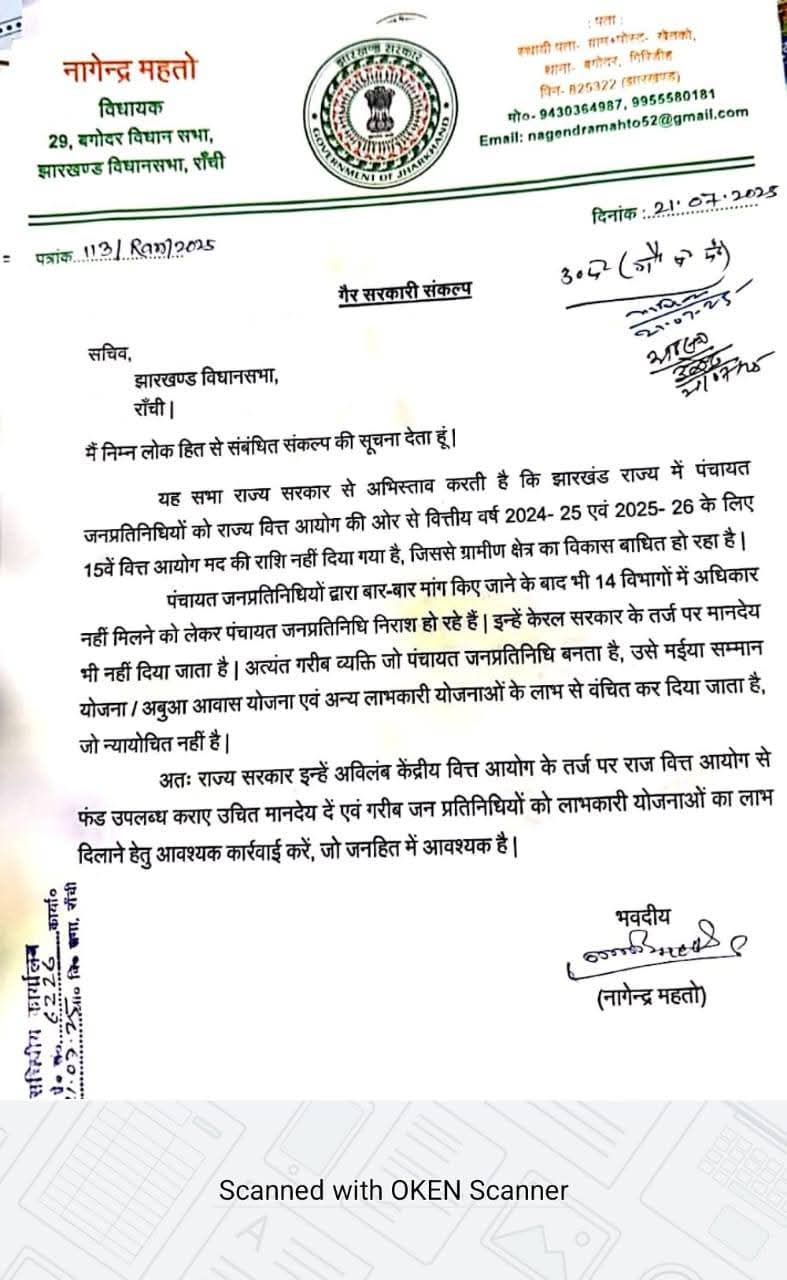 नागेन्द्र महतो
विधायक
29, बगोदर विधान सभा,
झारखण्ड विधानसभा, राँची
झारखण्ड सरकार
GOVERNMENT OF JHARKHAND
पता :
स्थायी पता- ग्राम+पोस्ट- खेतको,
थाना- बगोदर, गिरिडीह
पिन- 825322 (झारखण्ड)
मो०- 9430364987, 9955580181
Email: nagendramahto52@gmail.com
पत्रांक 113/Ran/2025
दिनांक : 21.07.2025
गैर सरकारी संकल्प
21-07-25
सचिव,
झारखण्ड विधानसभा,
राँची |
मैं निम्न लोक हित से संबंधित संकल्प की सूचना देता हूं |
यह सभा राज्य सरकार से अभिस्ताव करती है कि झारखंड राज्य में पंचायत
जनप्रतिनिधियों को राज्य वित्त आयोग की ओर से वित्तीय वर्ष 2024- 25 एवं 2025- 26 के लिए
15वें वित्त आयोग मद की राशि नहीं दिया गया है, जिससे ग्रामीण क्षेत्र का विकास बाधित हो रहा है |
पंचायत जनप्रतिनिधियों द्वारा बार-बार मांग किए जाने के बाद भी 14 विभागों में अधिकार
नहीं मिलने को लेकर पंचायत जनप्रतिनिधि निराश हो रहे हैं | इन्हें केरल सरकार के तर्ज पर मानदेय
भी नहीं दिया जाता है | अत्यंत गरीब व्यक्ति जो पंचायत जनप्रतिनिधि बनता है, उसे मईया सम्मान
योजना / अबुआ आवास योजना एवं अन्य लाभकारी योजनाओं के लाभ से वंचित कर दिया जाता है,
जो न्यायोचित नहीं है |
अतः राज्य सरकार इन्हें अविलंब केंद्रीय वित्त आयोग के तर्ज पर राज वित्त आयोग से
फंड उपलब्ध कराए उचित मानदेय दें एवं गरीब जन प्रतिनिधियों को लाभकारी योजनाओं का लाभ
दिलाने हेतु आवश्यक कार्रवाई करें, जो जनहित में आवश्यक है |
भवदीय
(नागेन्द्र महतो)
कार्यालय
सं० 6226 कार्या०
वि० सभा, राँची
Scanned with OKEN Scanner